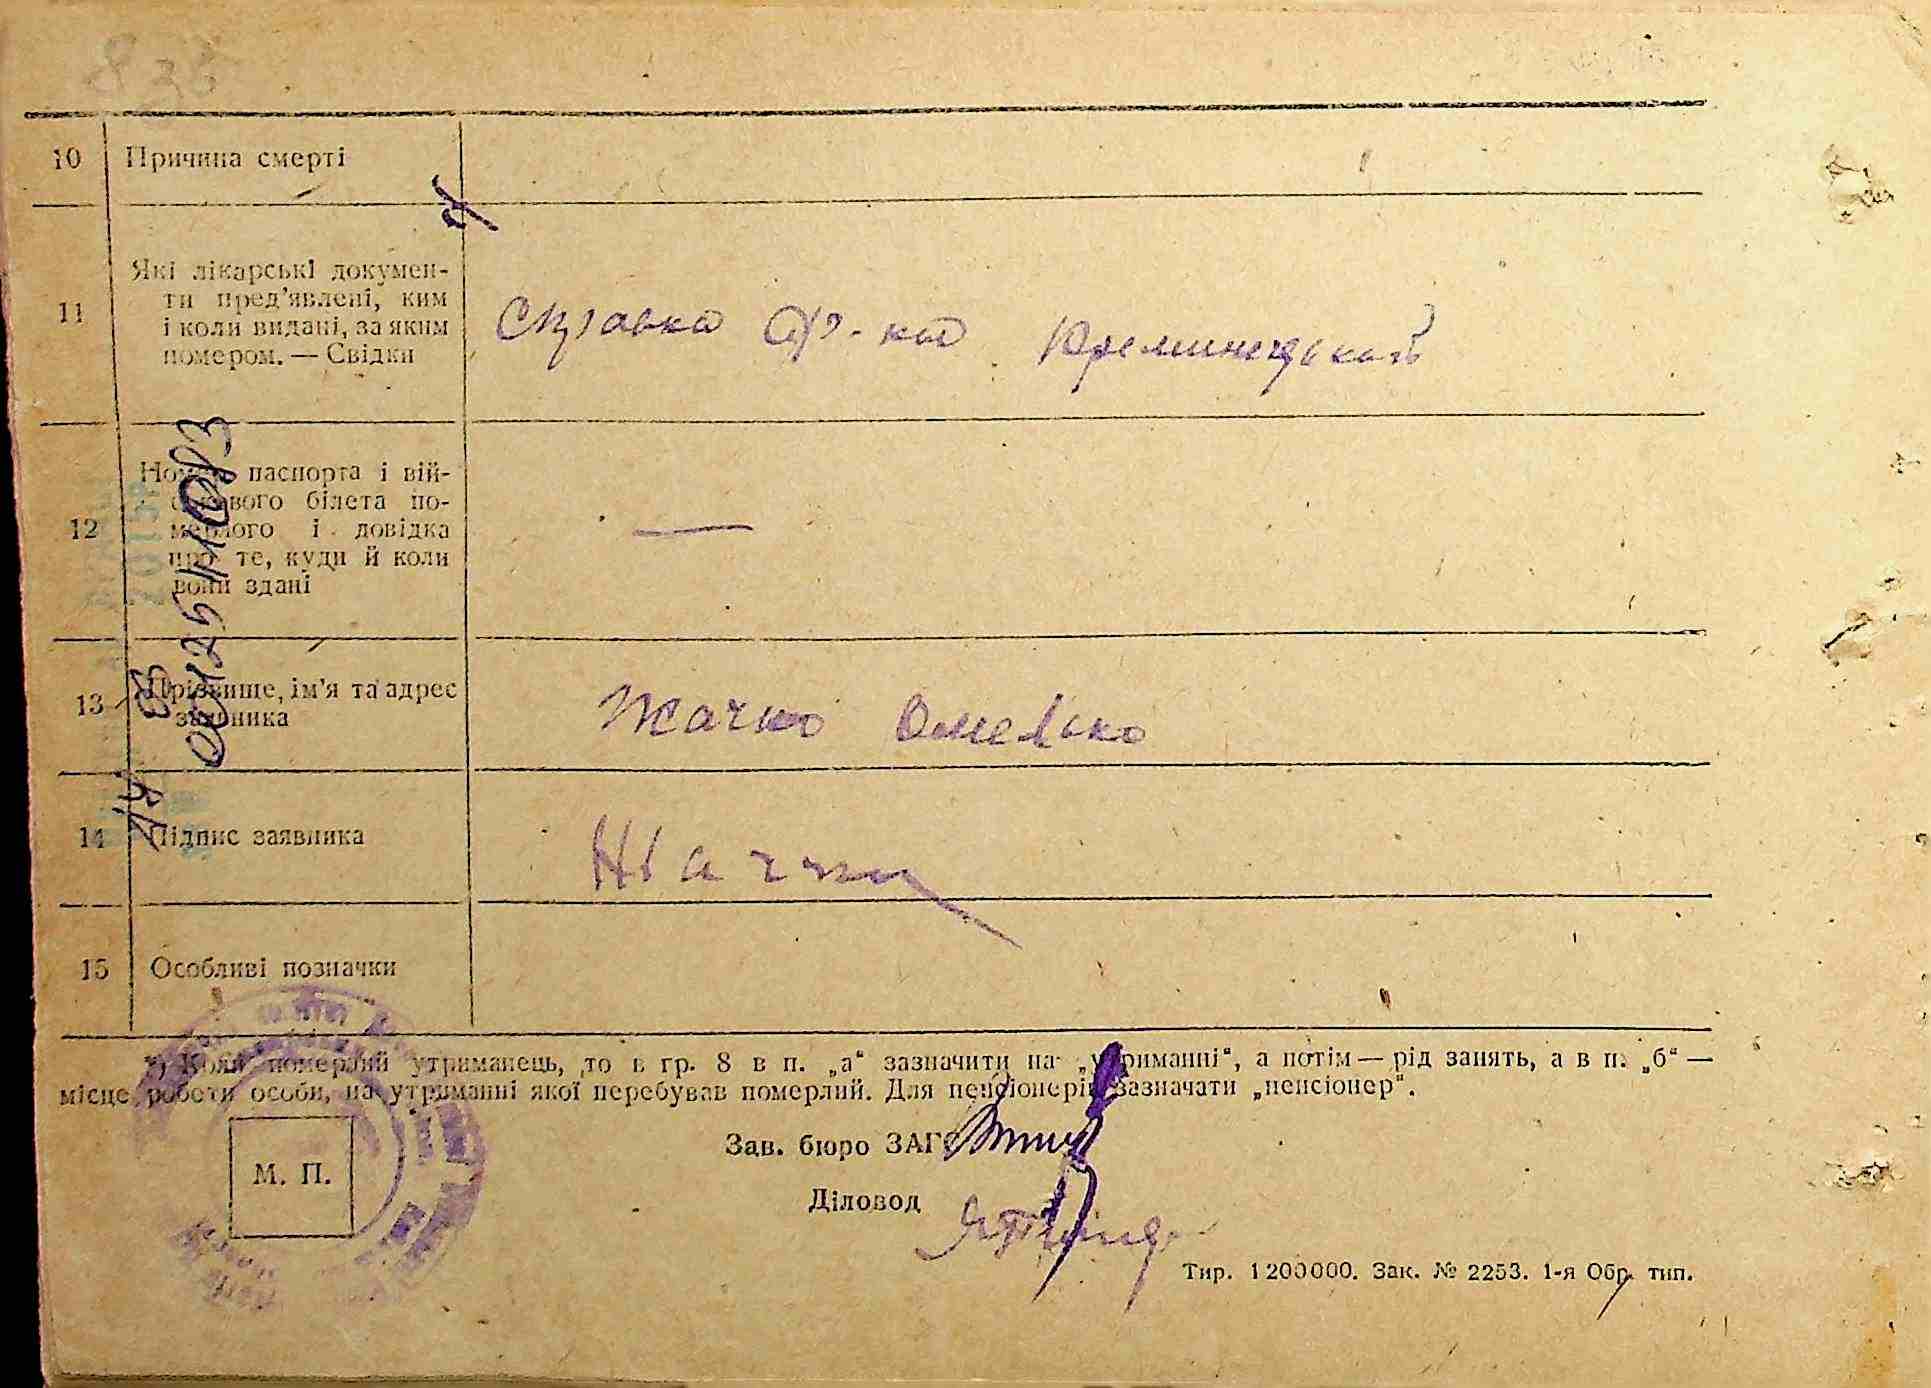 10 Причина смерті
11 Які лікарські докумен-
ти пред’явлені, ким
і коли видані, за яким
номером. — Свідки
Справка
12 Номер паспорта і вій-
ськового білета по-
мерлого і довідка
про те, куди й коли
вони здані
—
13 Прізвище, ім’я та адрес
заявника
Жачко Омелько
14 Підпис заявника
15 Особливі позначки
*) Коли померлий утриманець, то в гр. 8 в п. „а“ зазначити на „утриманні“, а потім — рід занять, а в п. „б“ —
місце роботи особи, на утриманні якої перебував померлий. Для пенсіонерів зазначати „пенсіонер“.
Зав. бюро ЗАГС
М. П.
Діловод
Тир. 1200000. Зак. № 2253. 1-я Обр. тип.